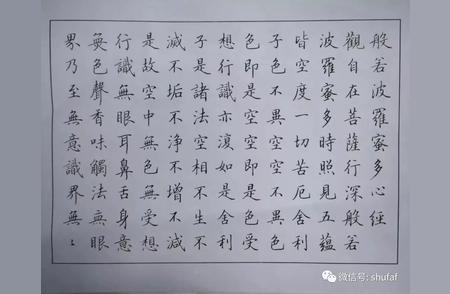 般若波羅蜜多心經
觀自在菩薩行深般若
波羅蜜多時照見五蘊
皆空度一切苦厄舍利
子色不異空空不異色
色即是空空即是色受
想行識亦復如是舍利
子是諸法空相不生不
滅不垢不淨不增不減
是故空中無色無受想
行識無眼耳鼻舌身意
無色聲香味觸法無眼
界乃至無意識界無〻
微信号: shufaf